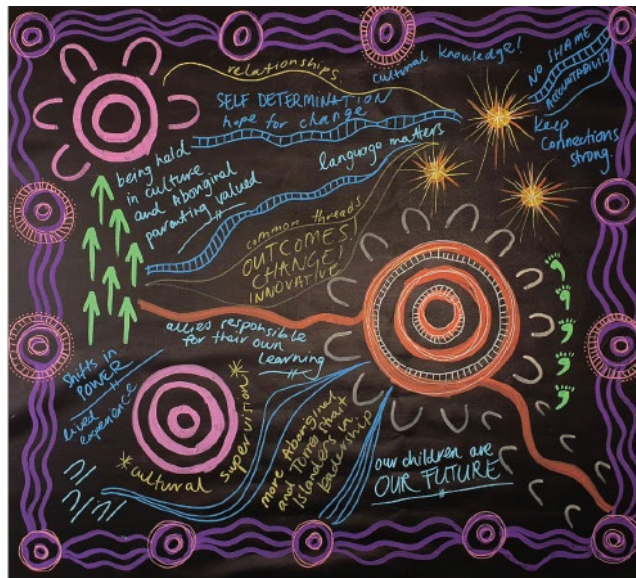 relationships.
cultural knowledge!
NO SHAME
ACCOUNTABILITY
SELF DETERMINATION
hope for change
keep
connections
strong.
language matters
being held
in culture
and Aboriginal
parenting valued
common threads
OUTCOMES!
CHANGE!
INNOVATIVE
allies responsible
for their own
learning
shifts in
POWER
lived experience
*cultural supervision*
more Aboriginal
and Torres Strait
Islanders in
leadership
our children are
OUR FUTURE